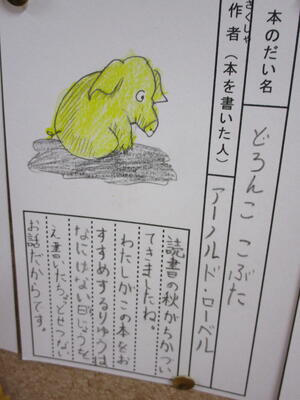 本のだい名
どろんこ こぶた
さくしゃ
作者（本を書いた人）
アーノルド・ローベル
読書の秋がちかづい
てきましたね。
わたしがこの本をお
すすめするりゆうは
なにげない日じょうを
え書いたちょっとせつない
お話だからです。